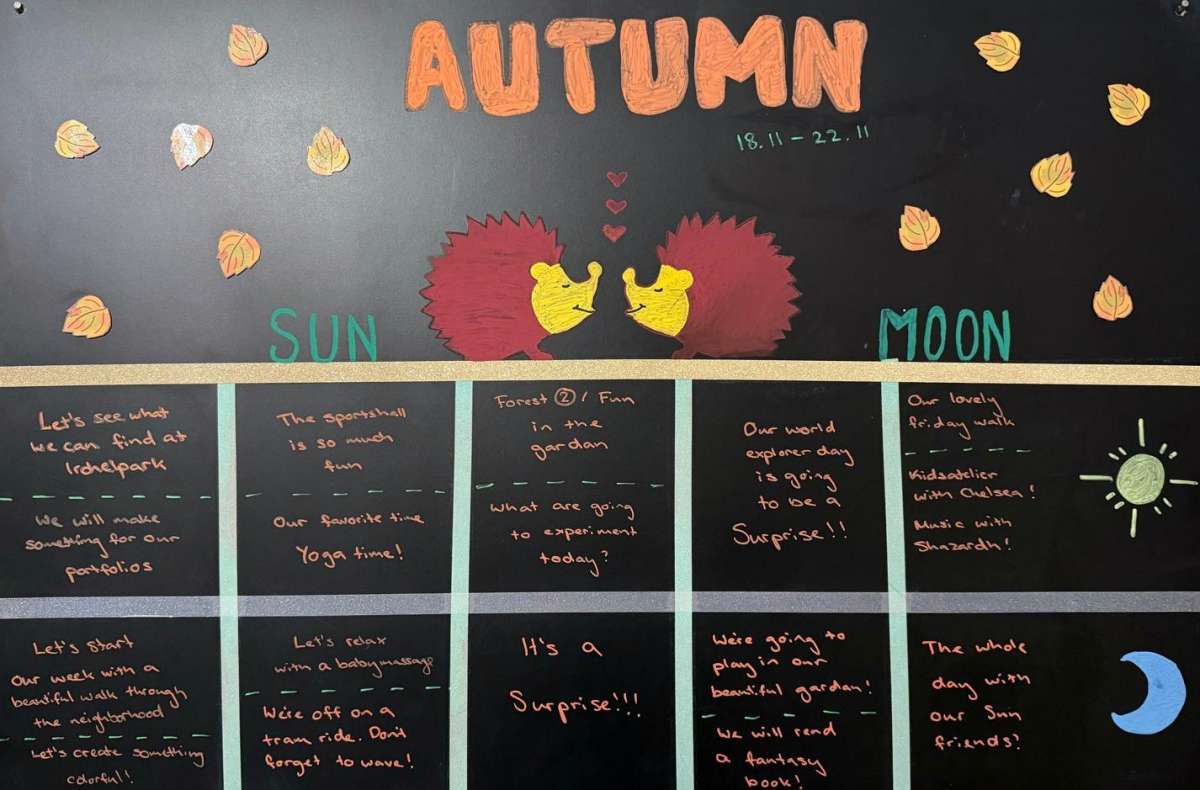 AUTUMN
18.11 – 22.11
SUN
MOON
Let's see what
we can find at
Irchelpark
We will make
something for our
portfolios
The sportshall
is so much
fun
Our favorite time
Yoga time!
Forest ② / Fun
in the
gardan
What are going
to experiment
today?
Our world
explorer day
is going
to be a
Surprise!!
Our lovely
friday walk
Kidsatelier
with Chelsea!
Music with
Shazardh!
Let's start
our week with a
beautiful walk through
the neighborhood
Let's create something
colorful!
Let's relax
with a babymassage
We're off on a
tram ride. Don't
forget to wave!
It's a
Surprise!!!
We're going to
play in our
beautiful gardan!
We will read
a fantasy
book!
The whole
day with
our Sun
friends?